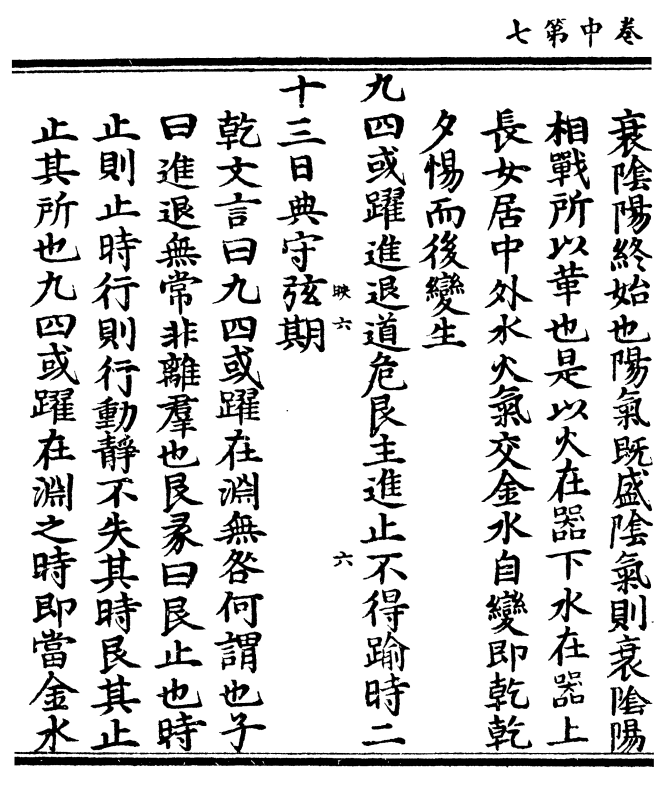 卷中第七
衰陰陽終始也陽氣既盛陰氣則衰陰陽
相戰所以革也是以火在器下水在器上
長女居中外水火氣交金水自變即乾乾
夕惕而後變生
九四或躍進退道危艮主進止不得踰時二
十三日典守弦期
映六
六
乾文言曰九四或躍在淵無咎何謂也子
曰進退無常非離羣也艮彖曰艮止也時
止則止時行則行動靜不失其時艮其止
止其所也九四或躍在淵之時即當金水